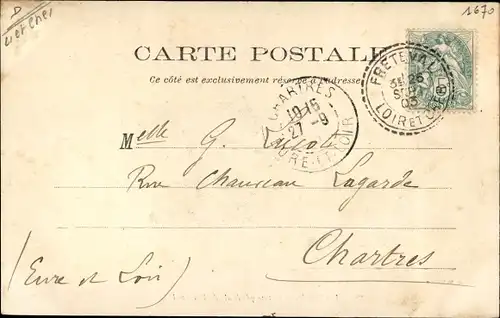 D
1670
CARTE POSTALE
Ce côté est exclusivement réservé à l'adresse
FRETEVAL
26
SEPT
03
LOIR ET CHER
CHARTRES
10-15
27-9
EURE-ET-LOIR
Melle G.
Rue Chauveau Lagarde
Chartres
(Eure et Loir)